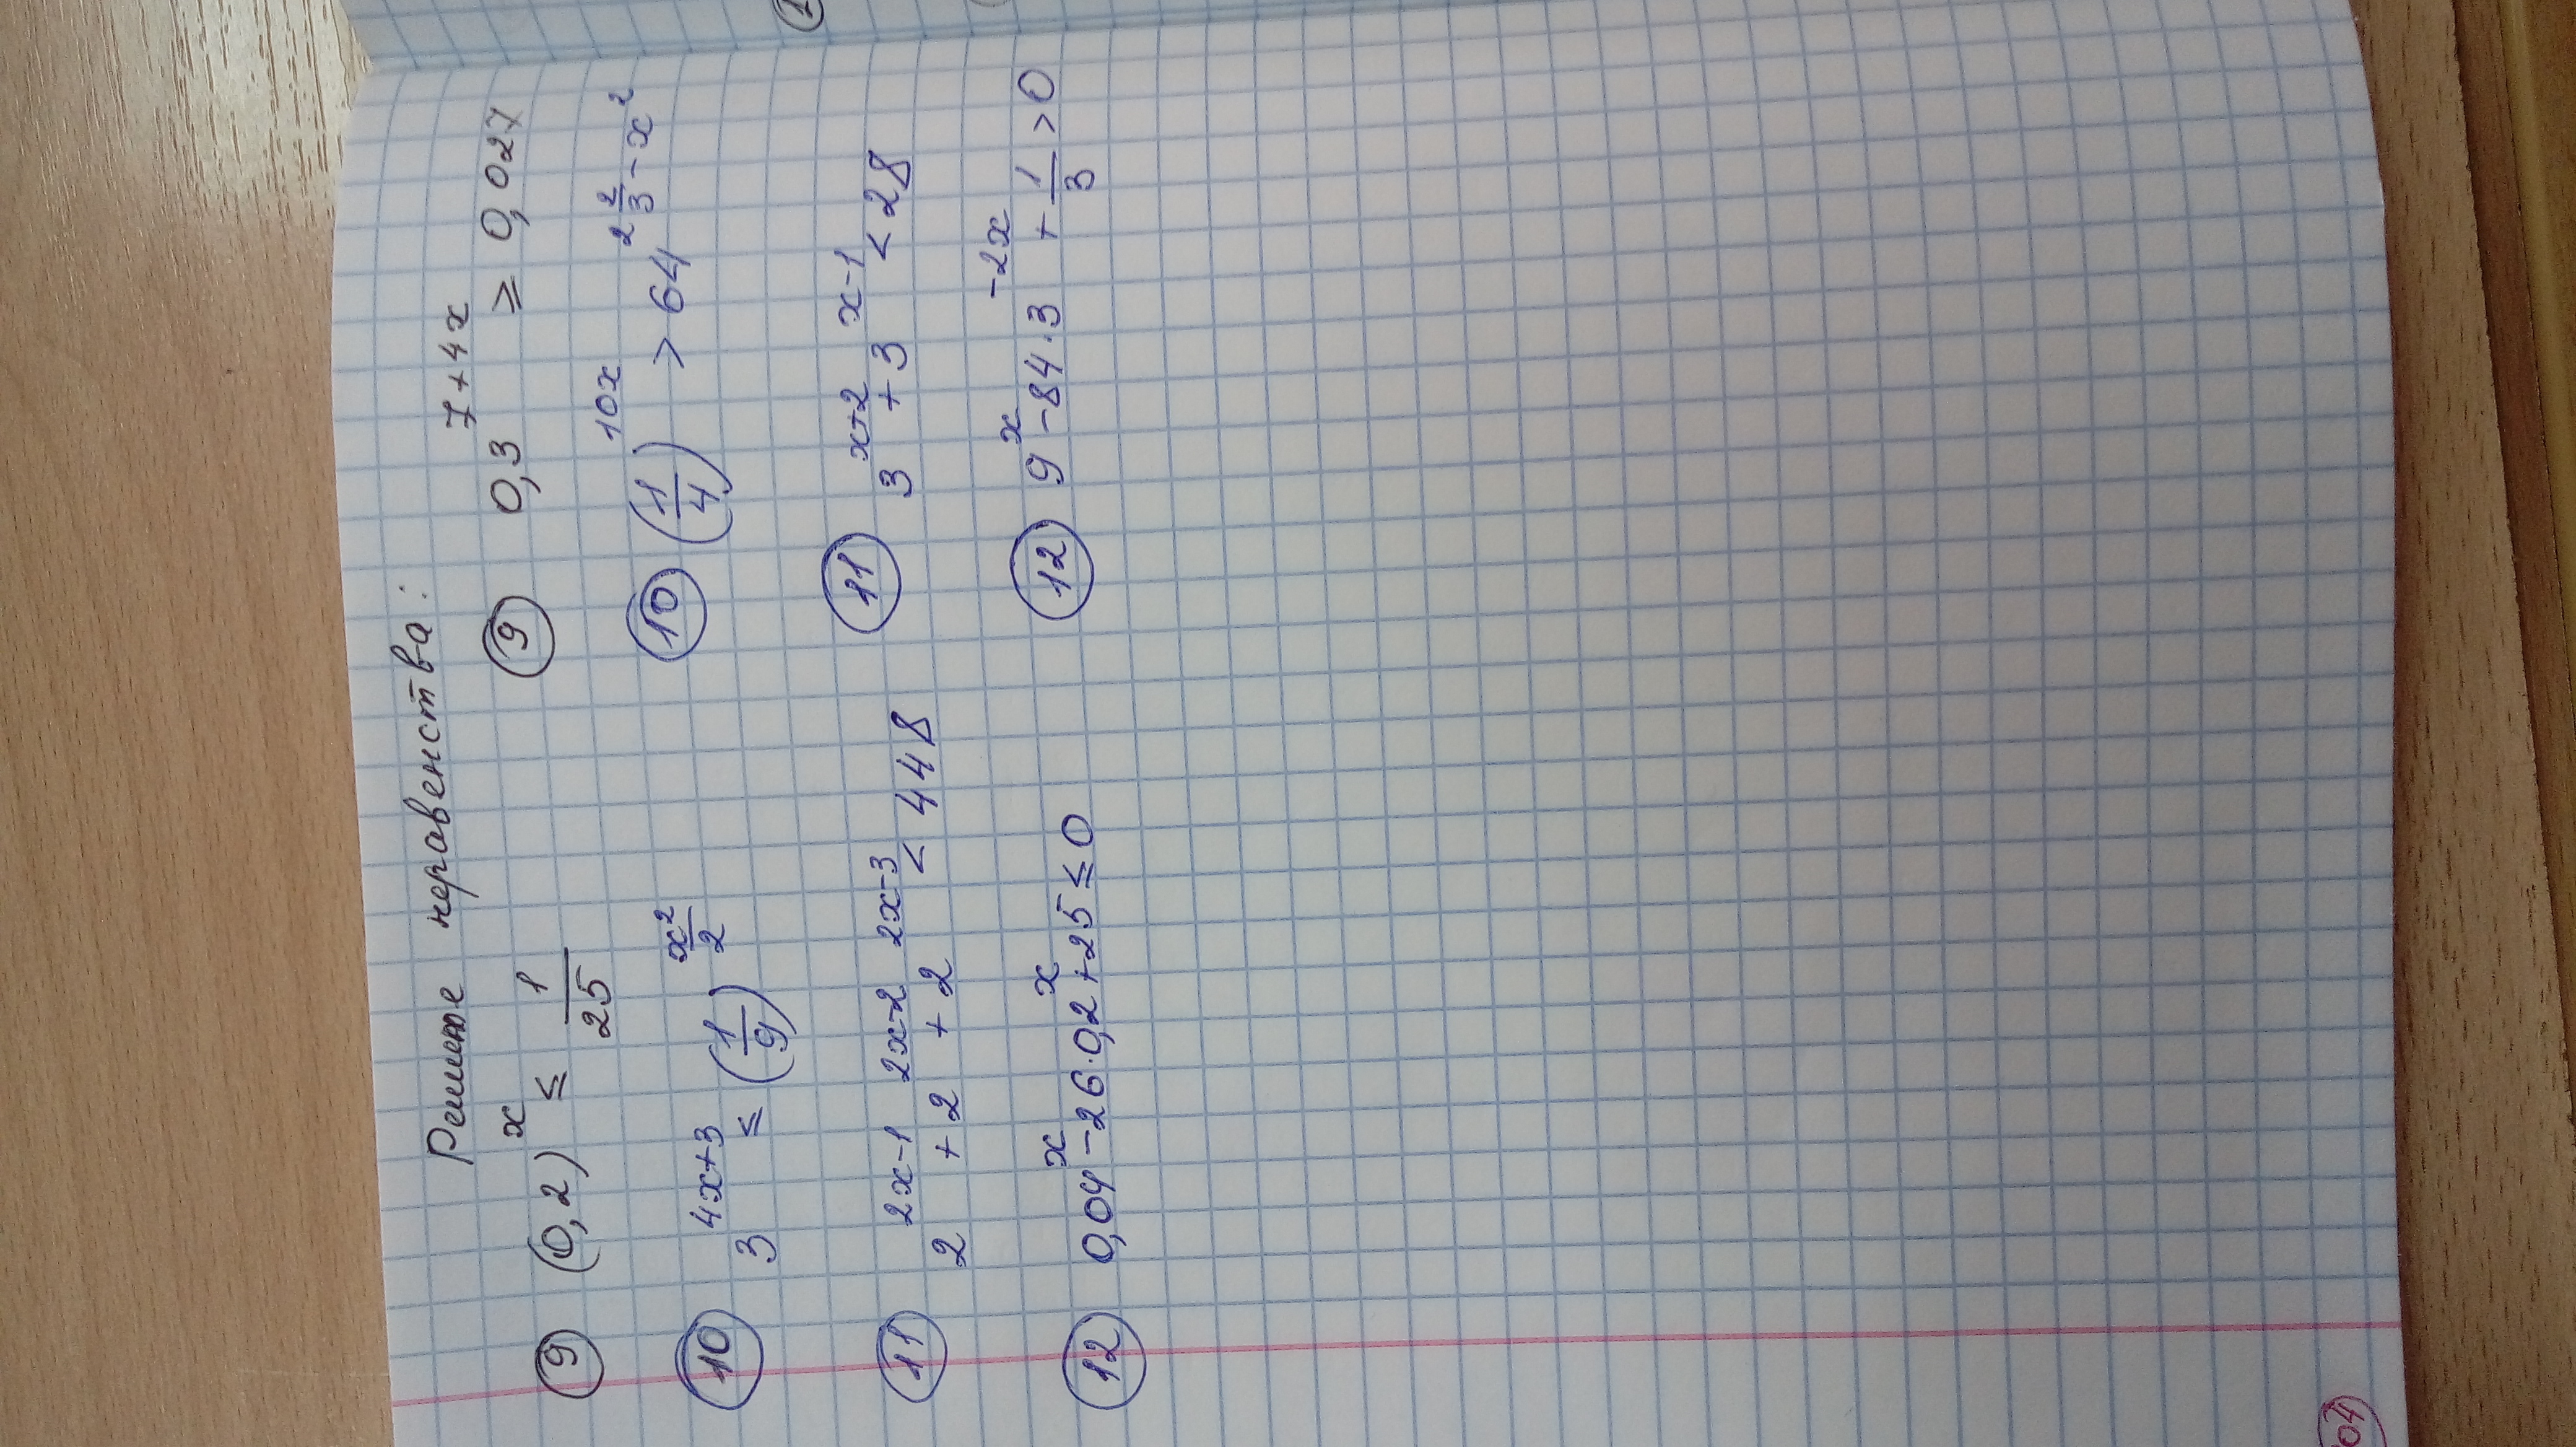 Решите неравенства:
9 (0,2)^x ≤ 1/25
10 3^(4x+3) ≤ (1/9)^(x²/2)
11 2^(2x-1) + 2^(2x-2) + 2^(2x-3) < 448
12 0,04^x - 26·0,2^x + 25 ≤ 0
9 0,3^(7+4x) ≥ 0,027
10 (1/4)^(10x) > 64^(2 2/3 - x²)
11 3^(x+2) + 3^(x-1) < 28
12 9^x - 84·3^(-2x) + 1/3 > 0
04